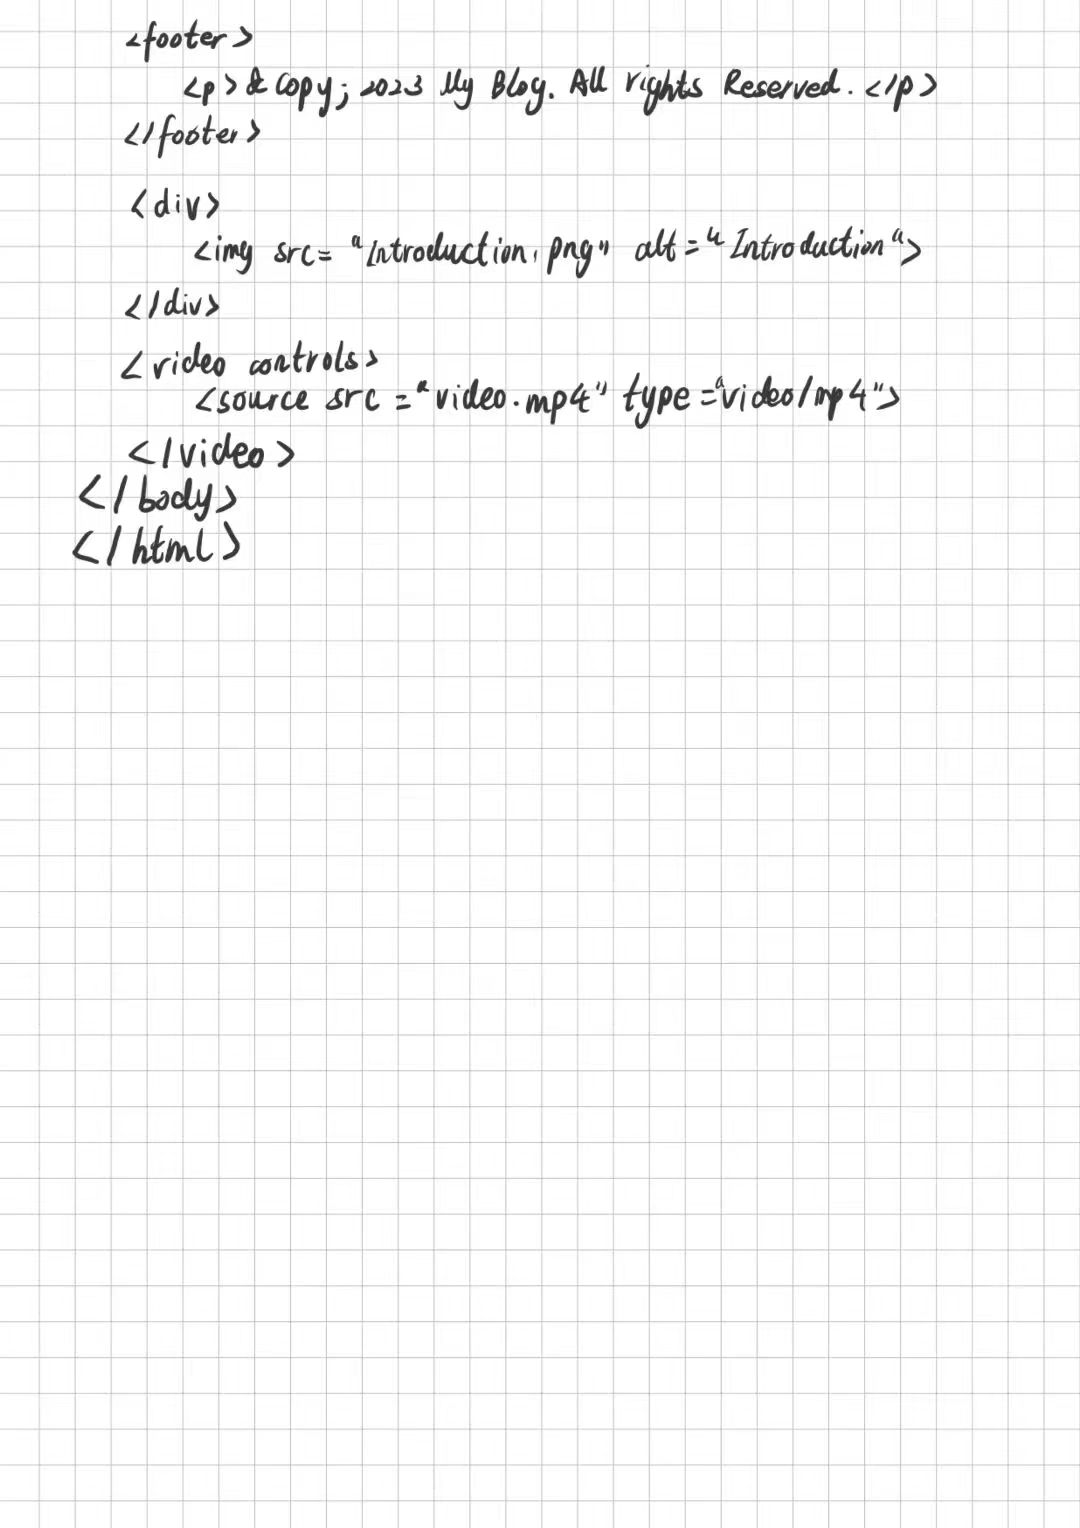 <footer>
<p>&copy; 2023 My Blog. All rights Reserved.</p>
</footer>
<div>
<img src="Introduction.png" alt="Introduction">
</div>
<video controls>
<source src="video.mp4" type="video/mp4">
</video>
</body>
</html>